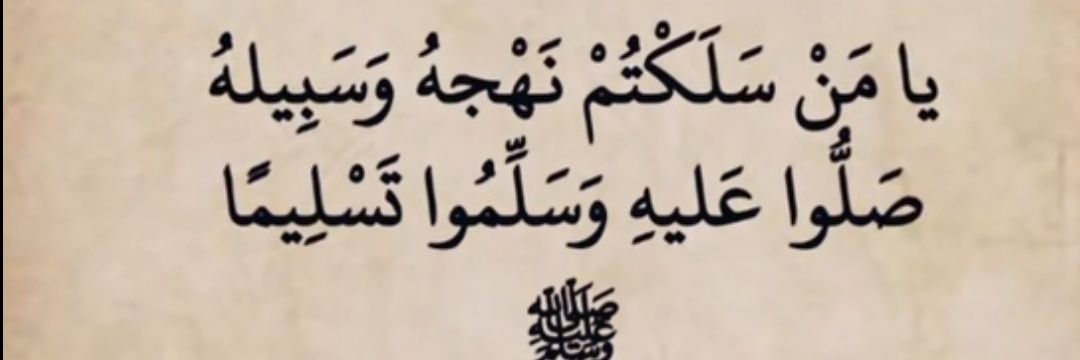 يا مَنْ سَلَكْتُمْ نَهْجهُ وَسَبِيلهُ
صَلُّوا عَليهِ وَسَلِّمُوا تَسْلِيمًا
ﷺ